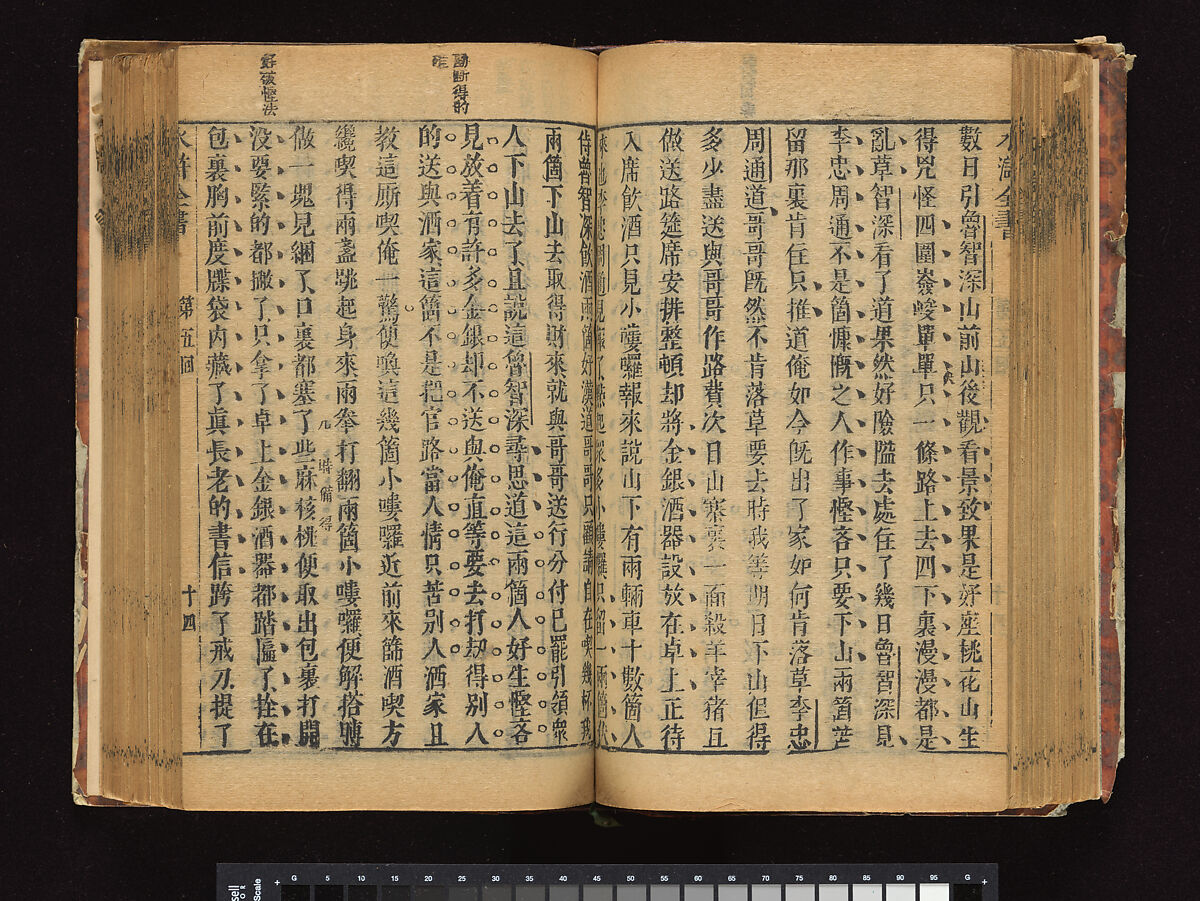 水滸全書
數日引魯智深山前山後觀看景致果是好座桃花山生
得兇怪四圍嶮峻單單只一條路上去四下裏漫漫都是
亂草智深看了道果然好險隘去處住了幾日魯智深見
李忠周通不是箇慷慨之人作事慳吝只要下山兩箇苦
留那裏肯住只推道俺如今既出了家如何肯落草李忠
周通道哥哥既然不肯落草要去時我等明日下山但得
多少盡送與哥哥作路費次日山寨裏一面殺羊宰猪且
做送路筵席安排整頓却將金銀酒器設放在卓上正待
入席飲酒只見小嘍囉報來說山下有兩輛車十數箇人
來也李忠周通見報了點起眾多小嘍囉只留一兩箇伏
侍魯智深飲酒兩箇好漢道哥哥只顧請自在喫幾杯我
兩箇下山去取得財來就與哥哥送行分付已罷引領衆
人下山去了且說這魯智深尋思道這兩箇人好生慳吝
見放着有許多金銀却不送與俺直等要去打劫得別人
的送與洒家這箇不是把官路當人情只苦別人洒家且
教這厮喫俺一驚便喚這幾箇小嘍囉近前來篩酒喫方
纔喫得兩盞跳起身來兩拳打翻兩箇小嘍囉便解搭膊
做一塊兒綑了口裏都塞了些麻核桃便取出包裹打開
没要緊的都撇了只拿了卓上金銀酒器都踏匾了拴在
包裏胸前度牒袋内藏了真長老的書信跨了戒刀提了
水滸全書 第五回 十四
勘斷得的
確
好破慳法
几時備得
G 5 10 15 20 25 30 35 40 45 50 55 60 65 70 75 80 85 90 95 G
Scale